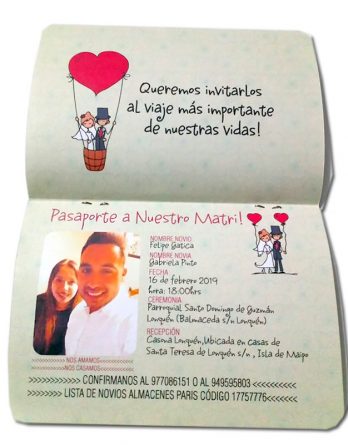 Queremos invitarlos
al viaje más importante
de nuestras vidas!
Pasaporte a Nuestro Matri!
NOMBRE NOVIO
Felipe Gatica
NOMBRE NOVIA
Gabriela Pinto
FECHA
16 de febrero 2019
hora: 18:00hrs
CEREMONIA
Parroquial Santo Domingo de Guzmán
Lonquén (Balmaceda s/n Lonquén)
RECEPCIÓN
Casona Lonquén,Ubicada en casas de
Santa Teresa de Lonquén s/n , Isla de Maipo
NOS AMAMOS
NOS CASAMOS
>>>>>>>>>>> CONFIRMANOS AL 977086151 O AL 949595803 <<<<<<<<
>>>>>>> LISTA DE NOVIOS ALMACENES PARIS CÓDIGO 17757776<<<<<<<